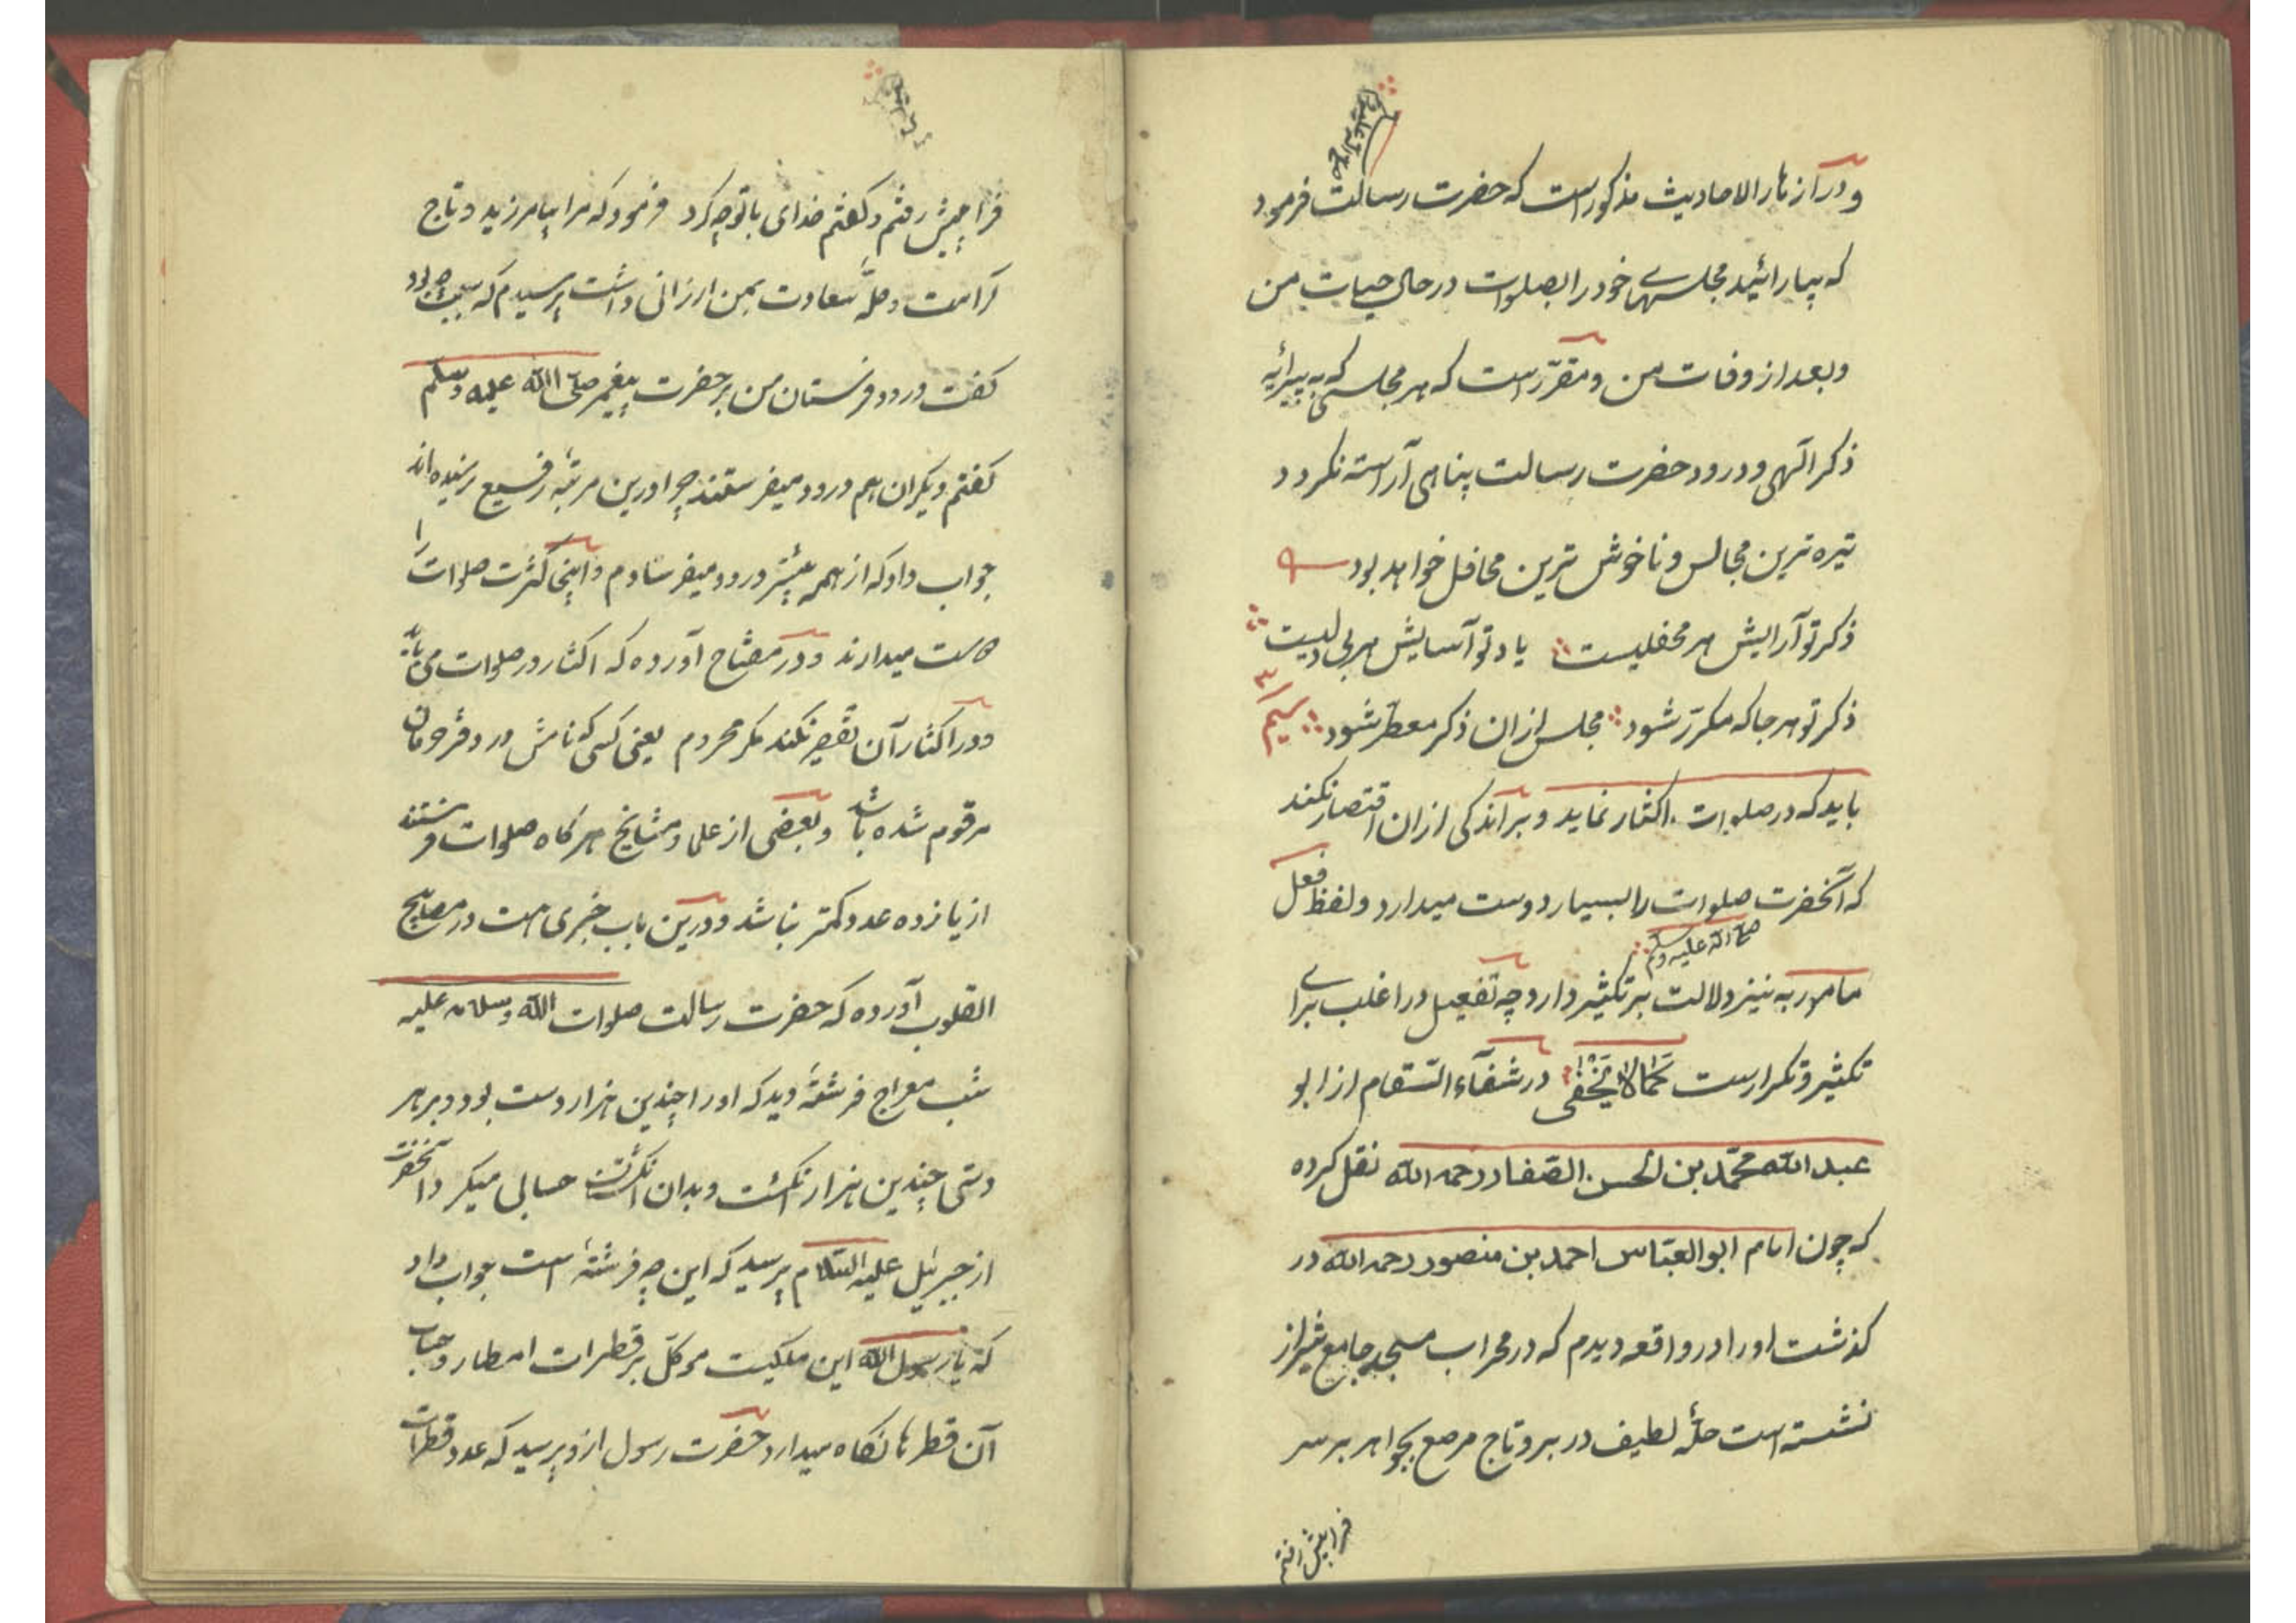 صلی الله علیه وسلم
و در ازهار الاحادیث مذکور است که حضرت رسالت فرمود
که بیارائید مجلسهای خود را بصلوات در حال حیات من
و بعد از وفات من و مقرّر است که هر مجلسی که به پیرائه
ذکر الهی و درود حضرت رسالت پناهی آراسته نکردد
تیره ترین مجالس و ناخوش ترین محافل خواهد بود
ذکر تو آرایش هر محفلیست یاد تو آسایش هر بی دلیست
ذکر تو هر جا که مکرّر شود مجلس ازان ذکر معطّر شود
باید که در صلوات اکثار نماید و بر اندکی ازان اقتصار نکند
که آنحضرت صلوات را بسیار دوست میدارد و لفظ فعل
صلی الله علیه وسلم
مامور به نیز دلالت بر تکثیر دارد چه تفعیل در اغلب برای
تکثیر و تکرار است کَمَا لَا یَخْفٰی در شفآء السّقام از ابو
عبد الله محمّد بن الحسن الصّفار رحمه الله نقل کرده
که چون امام ابو العبّاس احمد بن منصور رحمه الله در
کذشت او را در واقعه دیدم که در محراب مسجد جامع شیراز
نشسته است حلّهٔ لطیف در بر و تاج مرصع بجواهر بر سر
فرا پیش رفتم
فرا پیش رفتم و کفتم خدای با تو چه کرد فرمود که مرا بیامرزید و تاج
کرامت و حلّهٔ سعادت بمن ارزانی داشت پرسیدم که سبب چه بود
کفت درود فرستادن من بر حضرت پیغمبر صلّی الله علیه وسلم
کفتم دیکران هم درود میفرستند چرا درین مرتبهٔ رفیع نرسیده اند
جواب داد که از همه بیشتر درود میفرستادم و اینجا کثرت صلوات را
دوست میدارند و در مفتاح آورده که اکثار در صلوات می باید
و در اکثار آن تقصیر نکند مکر محروم یعنی کسی که نامش در دفتر حرمان
مرقوم شده باشد و بعضی از علما و مشایخ هرکاه صلوات فرستند
از یازده عدد کمتر نباشد و درین باب خبری است در مصابیح
القلوب آورده که حضرت رسالت صلوات الله وسلامه علیه
شب معراج فرشتهٔ دید که او را چندین هزار دست بود و بر هر
دستی چندین هزار انکشت و بدان انکشتان حسابی میکرد آنحضرت
از جبرئیل علیه السّلام پرسید که این چه فرشتهٔ است جواب داد
که یا رسول الله این ملکیست موکّل بر قطرات امطار و حساب
آن قطرها نکاه میدارد حضرت رسول ازو پرسید که عدد قطرات